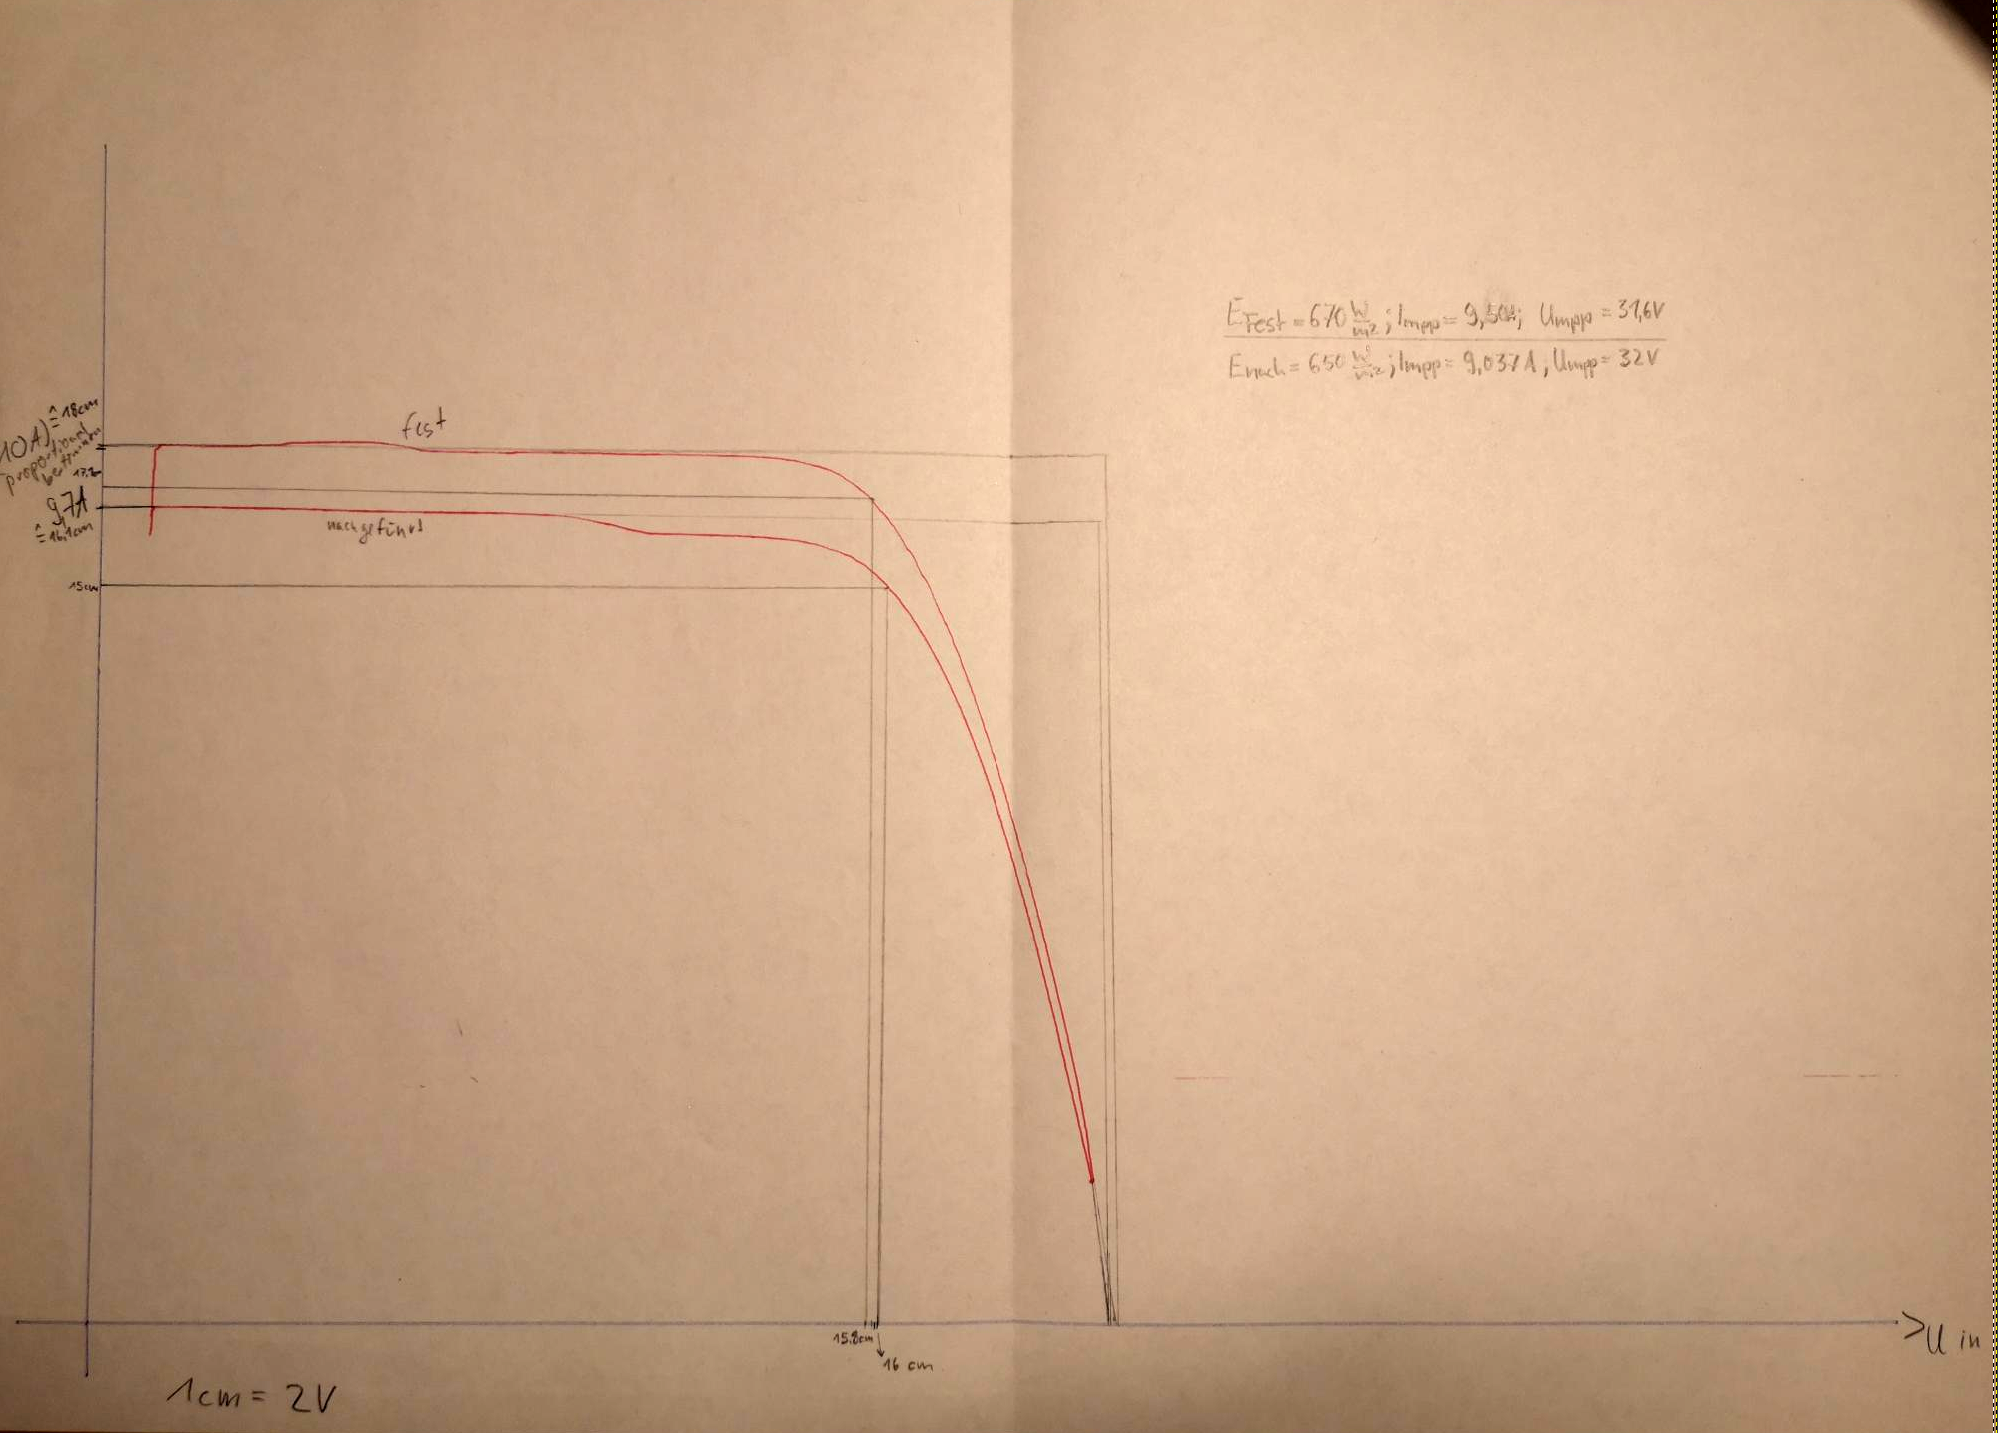 E_Fest = 670 W/m²; Impp = 9,50A; Umpp = 31,6V
E_nach = 650 W/m²; Impp = 9,037A, Umpp = 32V
≙ 18cm
10A)
proportional
fest
9,7A
≙ 16,1cm
nachgeführt
15cm
15.8cm
16 cm
> U in
1cm = 2V